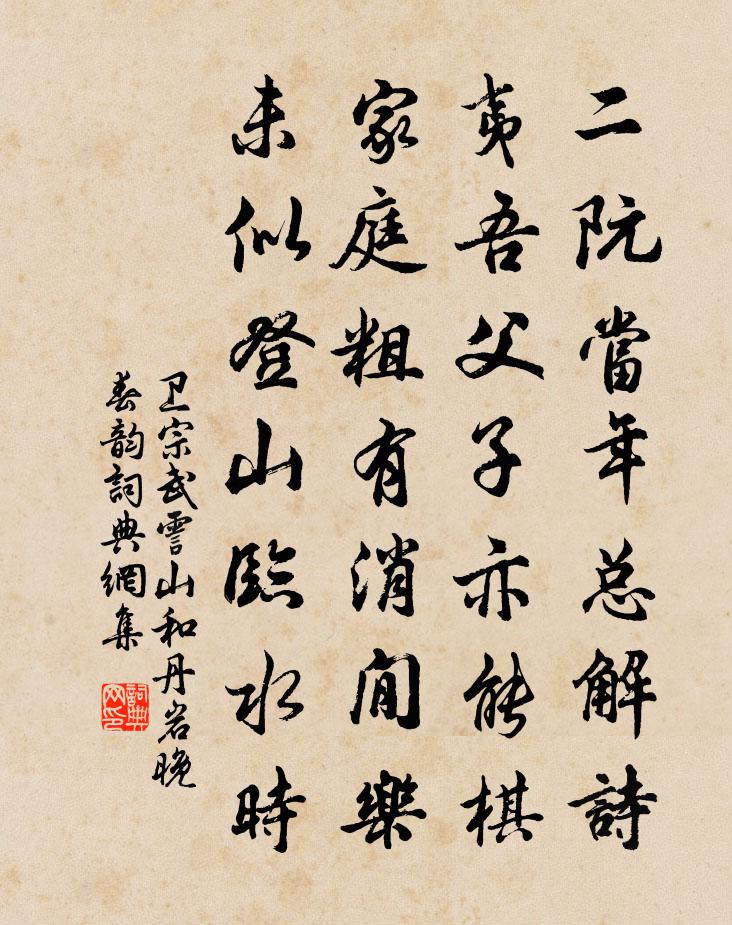 二阮當年总解詩
夷吾父子亦能棋
家庭粗有消閒樂
未似登山臨水時
卫宗武霅山和丹岩晚
春韵詞典網集
詞典
网印